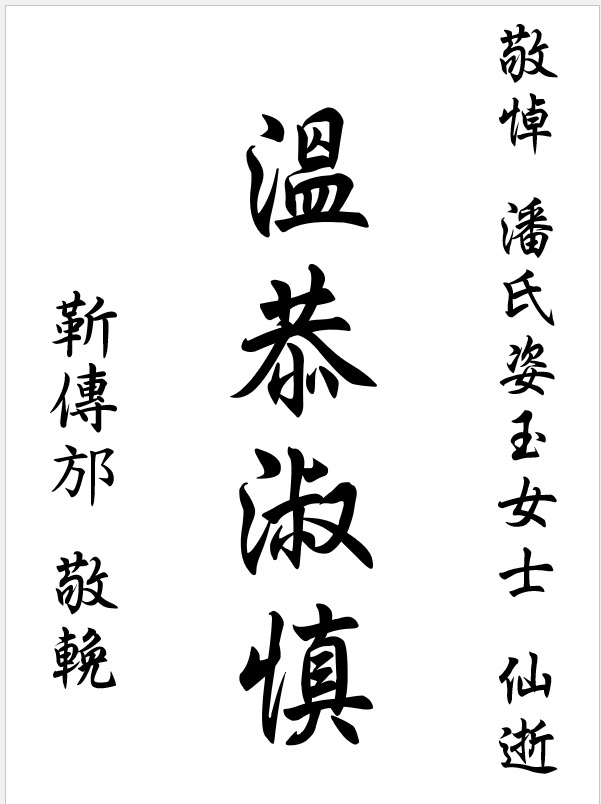 敬悼 潘氏姿玉女士 仙逝
溫恭淑慎
靳傳邡 敬輓